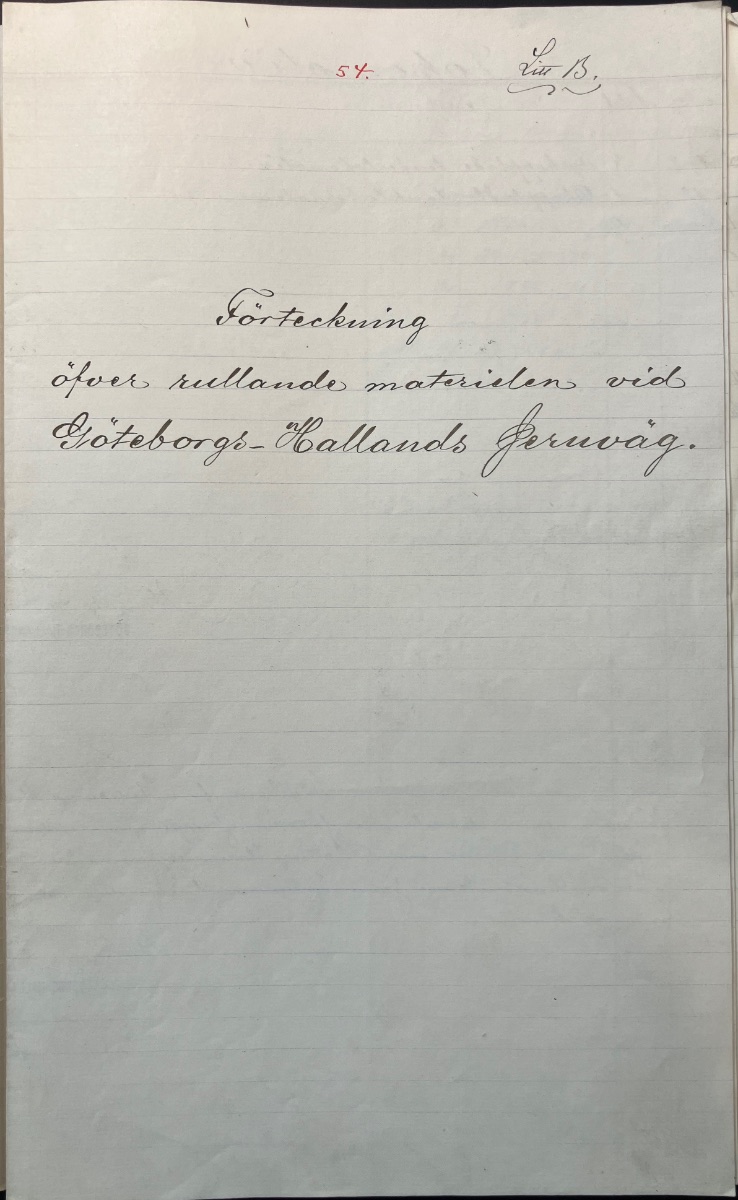 54.
Litt B.
Förteckning
öfver rullande materielen vid
Göteborgs-Hallands Jernväg.